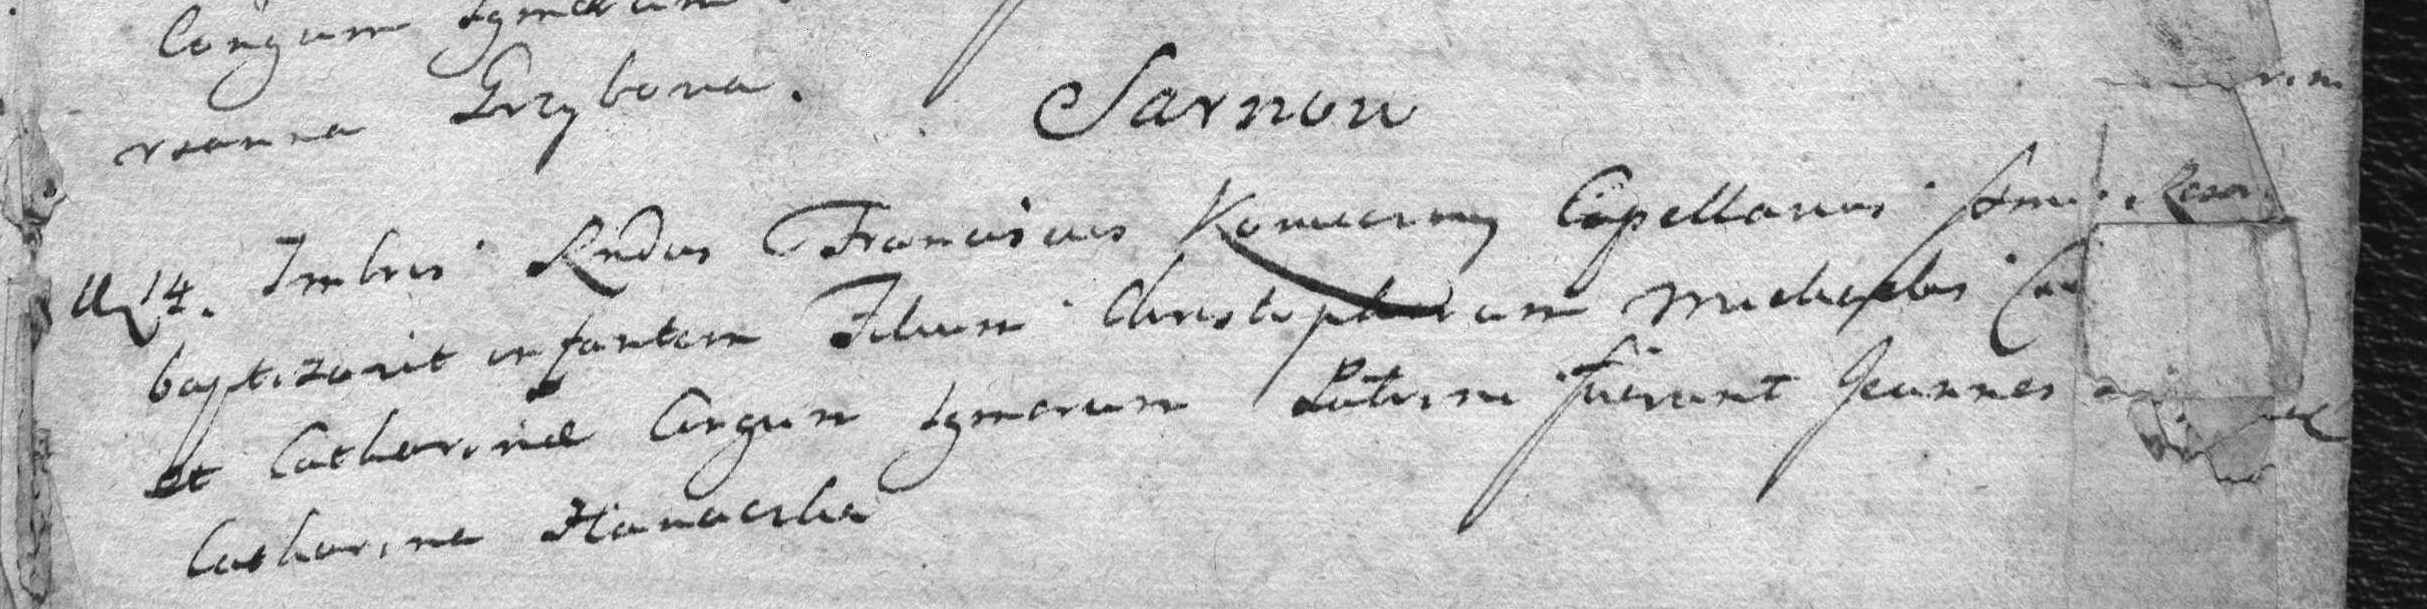 Congum Lgmorum
roanna Grzybowa.
Sarnow
14. Imbris Rndus Franciscus Konieczny Capellanus
baptizavit infantem Filium Christophorum Michaelis
et Catharinæ Congum Lgmorum Patrini fuerunt Joannes
Catharina